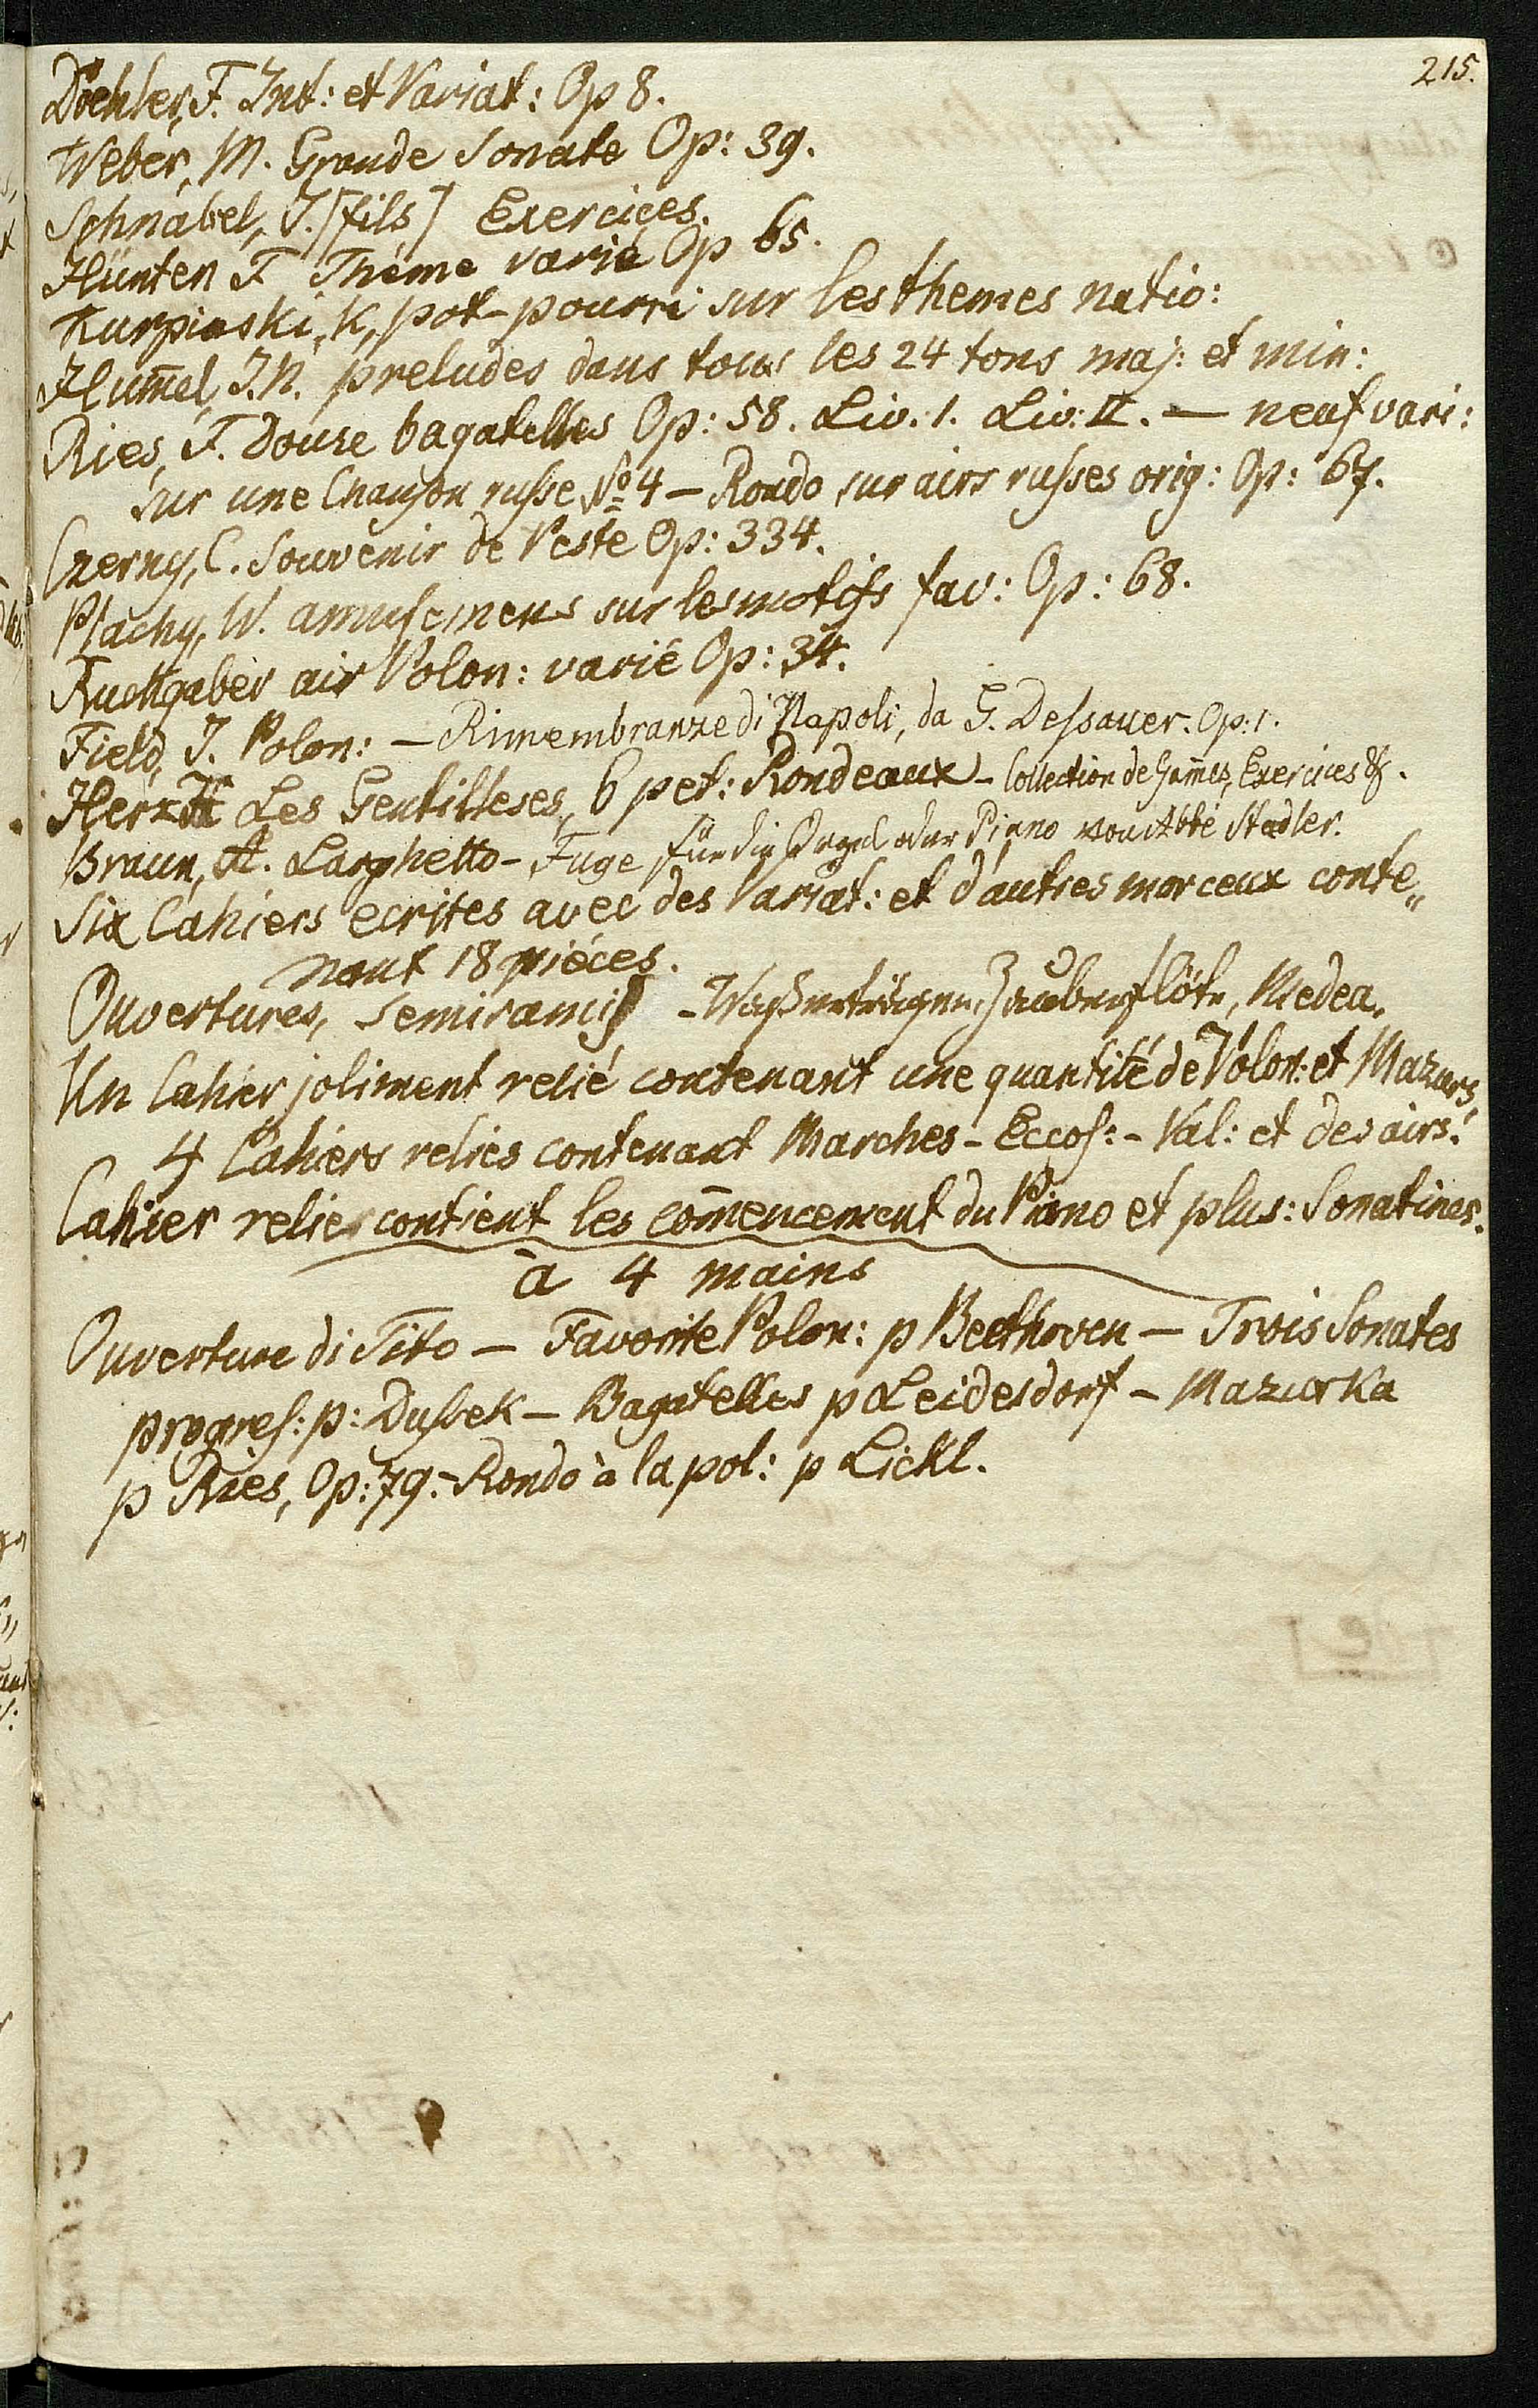 215.
Döehler, F. Int: et Variat: Op 8.
Weber, M. Grande Sonate Op: 39.
Schnabel, J. [fils] Exercices.
Hünten F Théme varié Op 65.
Kurpinski, K, pot-pourri sur les themes natio:
Hum̄el, J.N. preludes dans tous les 24 tons maj: et min:
Ries, F. Douze bagatelles Op: 58. Liv. 1. Liv: II. — neuf vari:
sur une Chanson russe No 4 — Rondo sur airs russes orig: Op: 67.
Czerny, C. Souvenir de Peste Op: 334.
Plachy, W. amusemens sur les motifs fav: Op: 68.
Ruckgaber air Polon: varié Op: 34.
Field, J. Polon: — Rimembranze di Napoli, da G. Dessauer. Op: 1.
Herz H Les Gentilleses, 6 pet: Rondeaux — Collection de Gam̄es, Exercices &.
Braun, A. Larghetto — Fuge für die Orgel oder Piano von Abbé Stadler.
Six Cahiers ecrites avec des Variat: et d'autres morceux conte„
nant 18 piéces.
Ouvertures, Semiramis — Wasserträger, Zauberflöte, Medea.
Un Cahier joliment relié contenant une quantité de Polon: et Mazurs,
4 Cahiers relies contenant Marches — Eccos: — Val: et des airs.
Cahier relier contient les com̄encement du Piano et plus: Sonatines.
à 4 mains
Ouverture di Tito — Favorite Polon: p Beethoven — Trois Sonates
progres: p: Dussek — Bagatelles p Leidesdorf — Mazurka
p Ries, Op: 79. — Rondo à la pol: p Lickl.